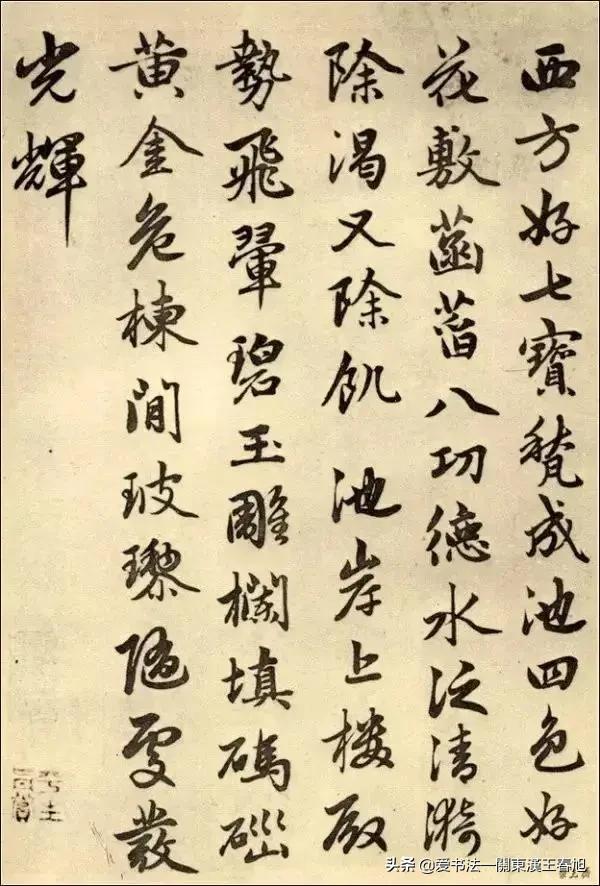 西方好七寶甃成池四色好
花敷菡萏八功德水泛清漪
除渴又除飢 池岸上樓殿
勢飛翬碧玉雕欄填碼碯
黄金危棟間玻瓈隨處發
光輝
头条 @爱书法一關東漢王春旭